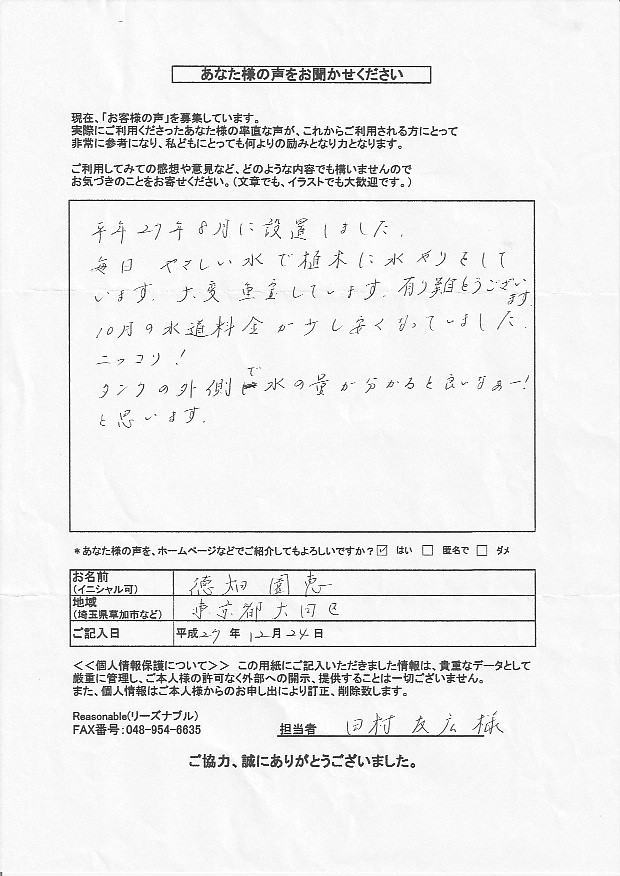 あなた様の声をお聞かせください
現在、「お客様の声」を募集しています。
実際にご利用くださったあなた様の率直な声が、これからご利用される方にとって
非常に参考になり、私どもにとっても何よりの励みとなり力となります。
ご利用してみての感想や意見など、どのような内容でも構いませんので
お気づきのことをお寄せください。(文章でも、イラストでも大歓迎です。)
平年27年8月に設置しました.
毎日 やさしい水で植木に水やりをして
います. 大変重宝しています. 有り難とうございます.
10月の水道料金が少し安くなっていました.
ニッコリ!
タンクの外側で水の量が分かると良いなぁー!
と思います.
*あなた様の声を、ホームページなどでご紹介してもよろしいですか?☑ はい □ 匿名で □ ダメ
お名前
(イニシャル可) 徳畑 園恵
地域
(埼玉県草加市など) 東京都大田区
ご記入日 平成27年12月24日
<<個人情報保護について>> この用紙にご記入いただきました情報は、貴重なデータとして
厳重に管理し、ご本人様の許可なく外部への開示、提供することは一切ございません。
また、個人情報はご本人様からのお申し出により訂正、削除致します。
Reasonable(リーズナブル)
FAX番号:048-954-6635 担当者 田村友広様
ご協力、誠にありがとうございました。